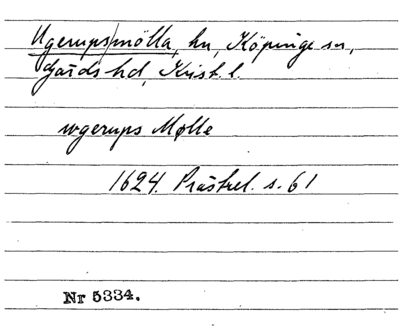 Ugerups/mölla, hn, Köpinge sn,
Gärds hd, Krist. l.
wgerups Mølle
1624. Prästrel. s. 61
Nr 5334.